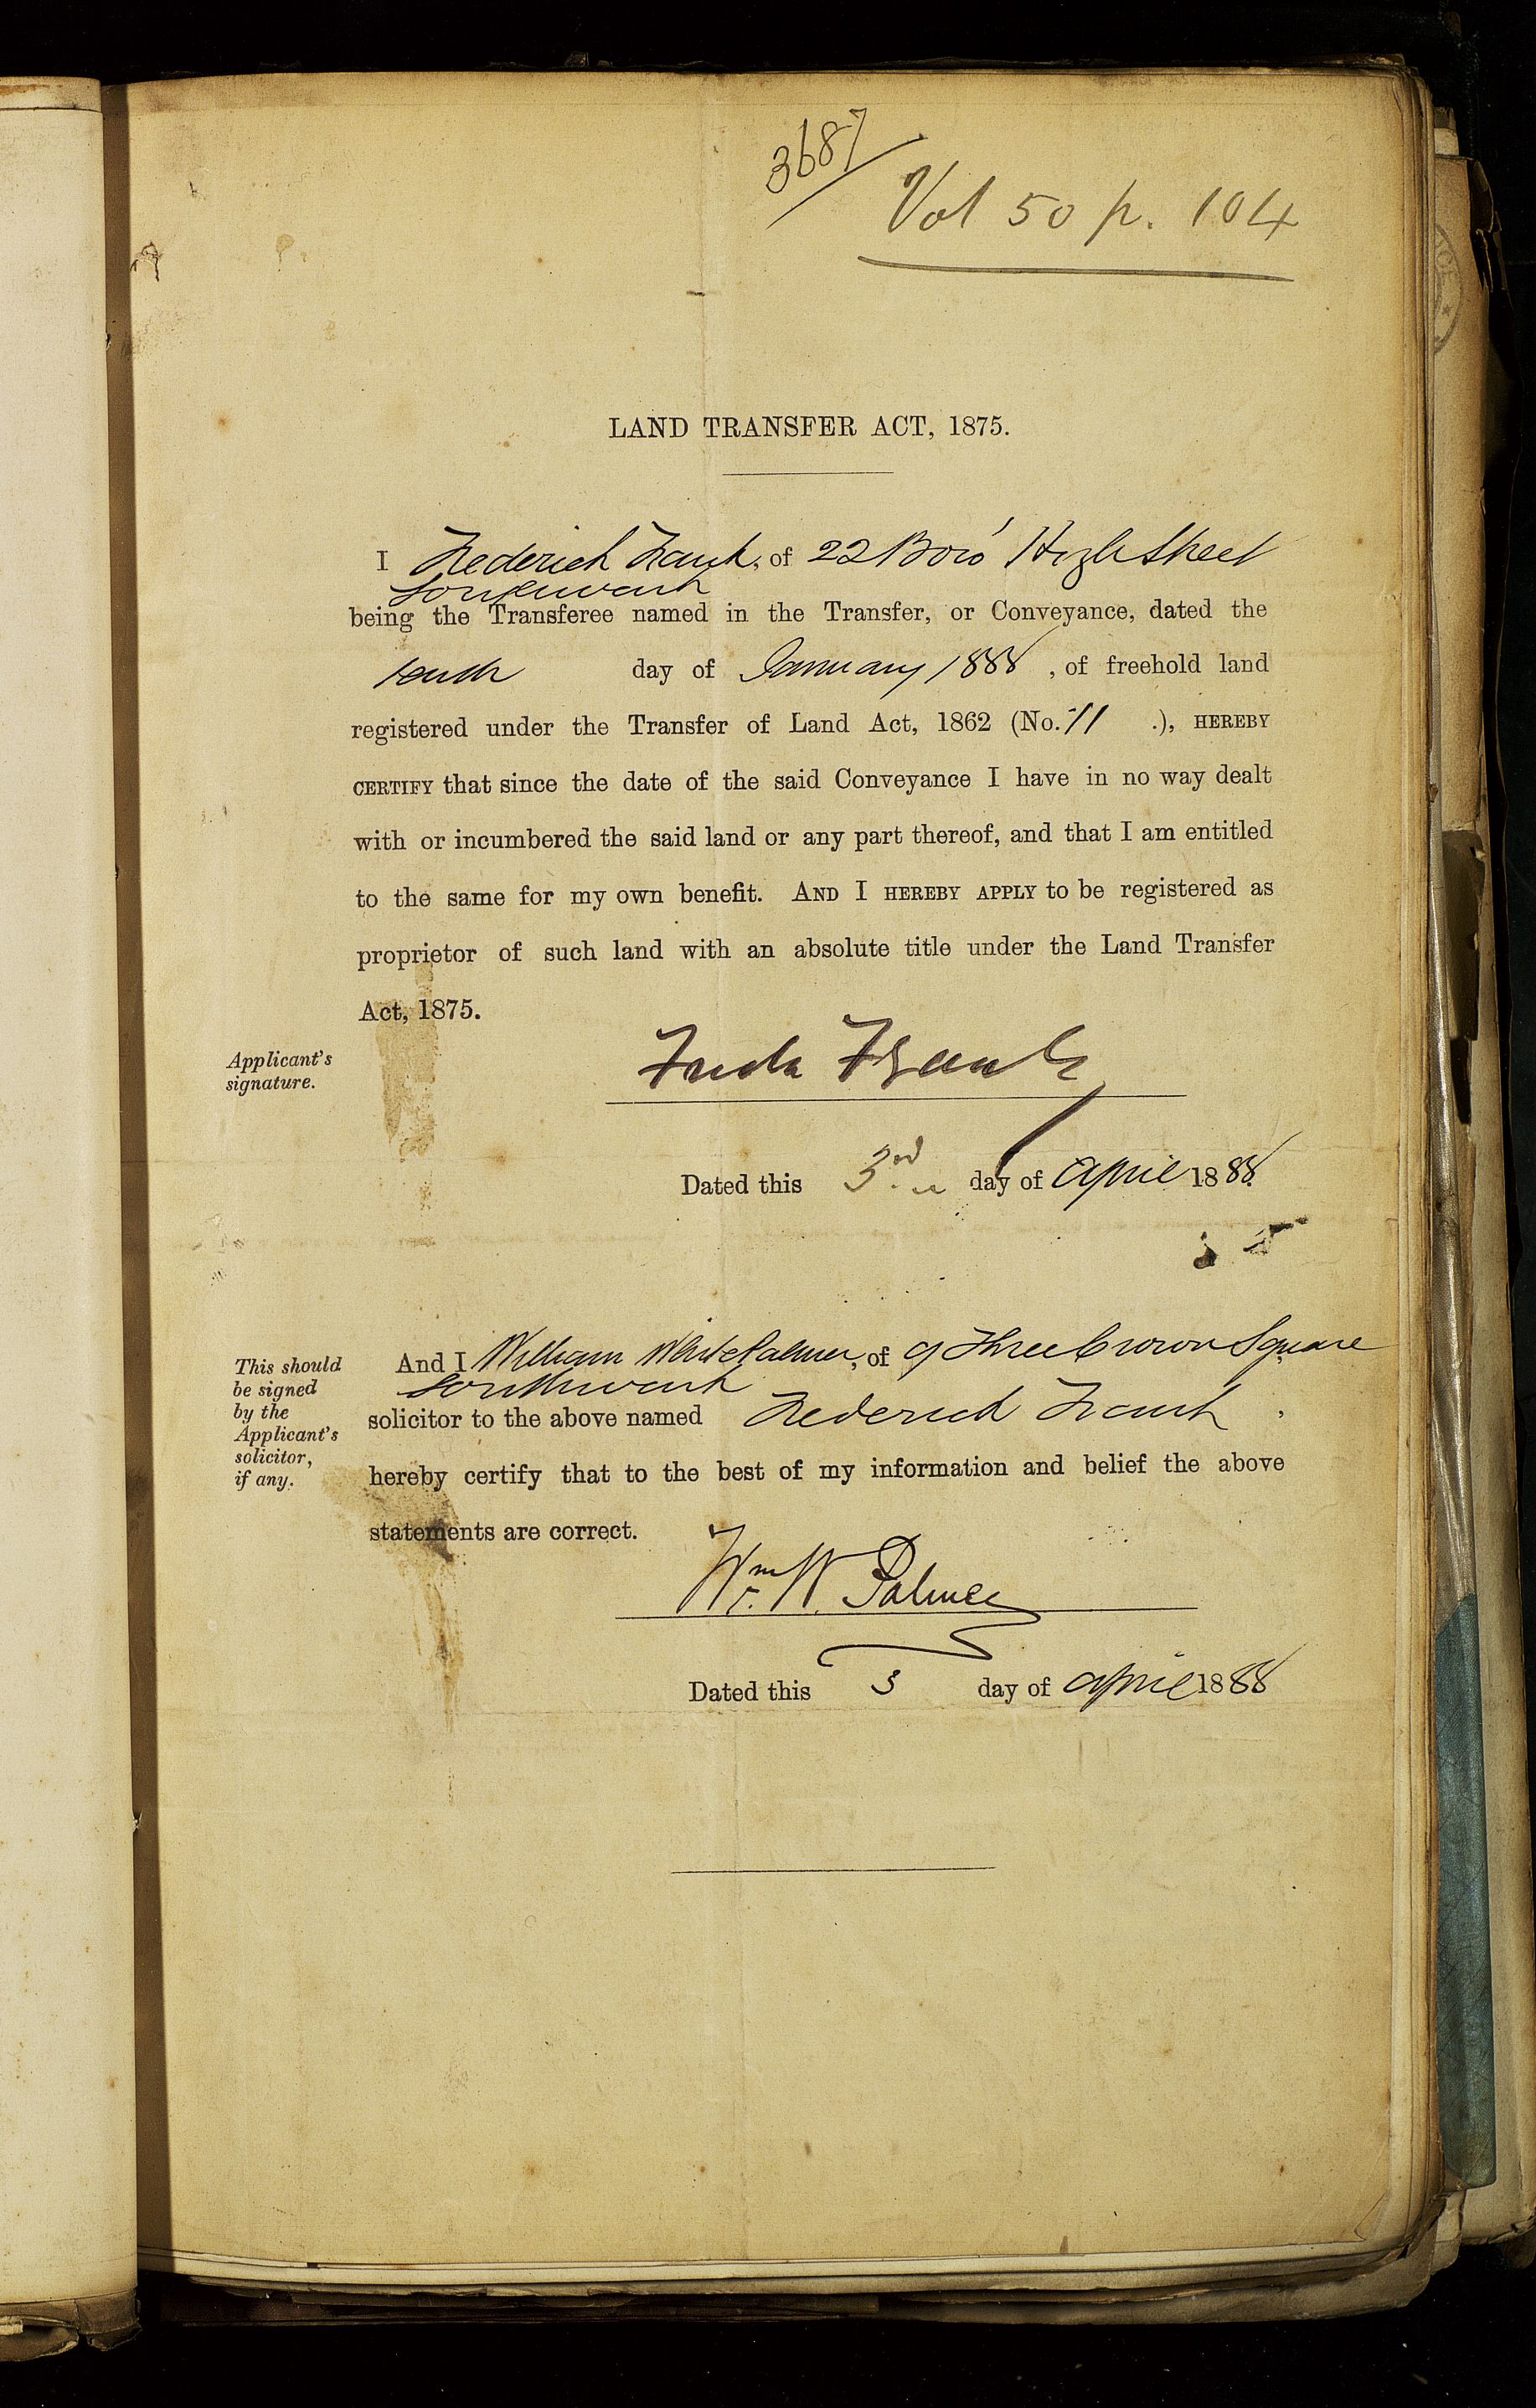 3687
Vol 50 p. 104
LAND TRANSFER ACT, 1875.
I Frederick Frank, of 22 Boro' High Street
Southwark
being the Transferee named in the Transfer, or Conveyance, dated the
tenth day of January 1888, of freehold land
registered under the Transfer of Land Act, 1862 (No. 11 .), HEREBY
CERTIFY that since the date of the said Conveyance I have in no way dealt
with or incumbered the said land or any part thereof, and that I am entitled
to the same for my own benefit. AND I HEREBY APPLY to be registered as
proprietor of such land with an absolute title under the Land Transfer
Act, 1875.
Applicant's
signature.
Fredk Frank
Dated this 3rd day of April 1888.
This should
be signed
by the
Applicant's
solicitor,
if any.
And I William White Palmer, of 9 Three Crown Square
Southwark
solicitor to the above named Frederick Frank,
hereby certify that to the best of my information and belief the above
statements are correct.
Wm. W. Palmer
Dated this 3 day of April 1888